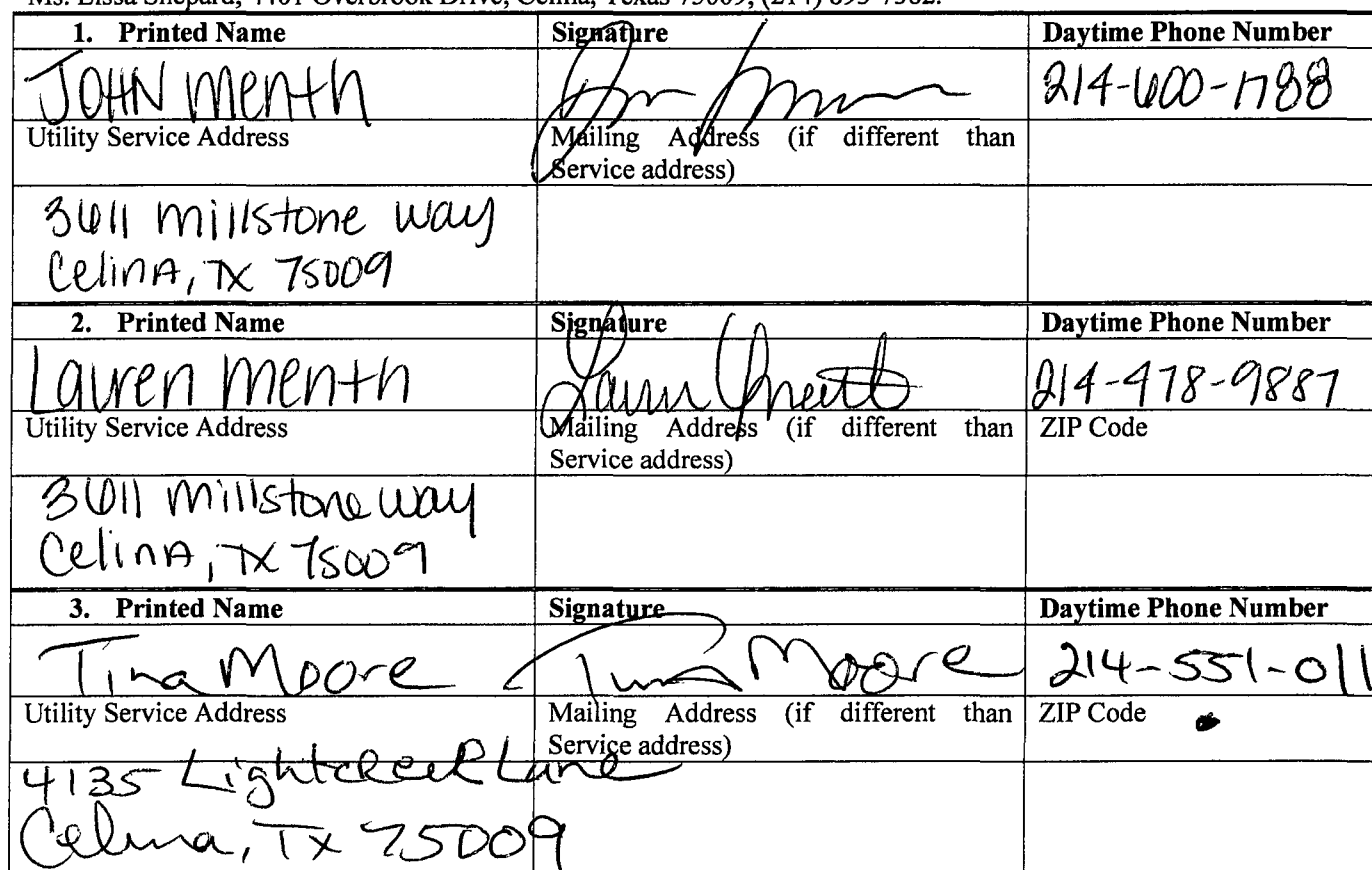 Ms. Lissa Shepard, 4401 Overbrook Drive, Celina, Texas 75009, (214) 893-7382.
1. Printed Name Signature Daytime Phone Number
JOHN Menth 214-600-1788
Utility Service Address Mailing Address (if different than
Service address)
3611 Millstone Way
Celina, TX 75009
2. Printed Name Signature Daytime Phone Number
Lauren Menth 214-478-9887
Utility Service Address Mailing Address (if different than ZIP Code
Service address)
3611 Millstone Way
Celina, TX 75009
3. Printed Name Signature Daytime Phone Number
Tina Moore Tina Moore 214-551-011
Utility Service Address Mailing Address (if different than ZIP Code
Service address)
4135 Lightcreek Lane
Celina, Tx 75009